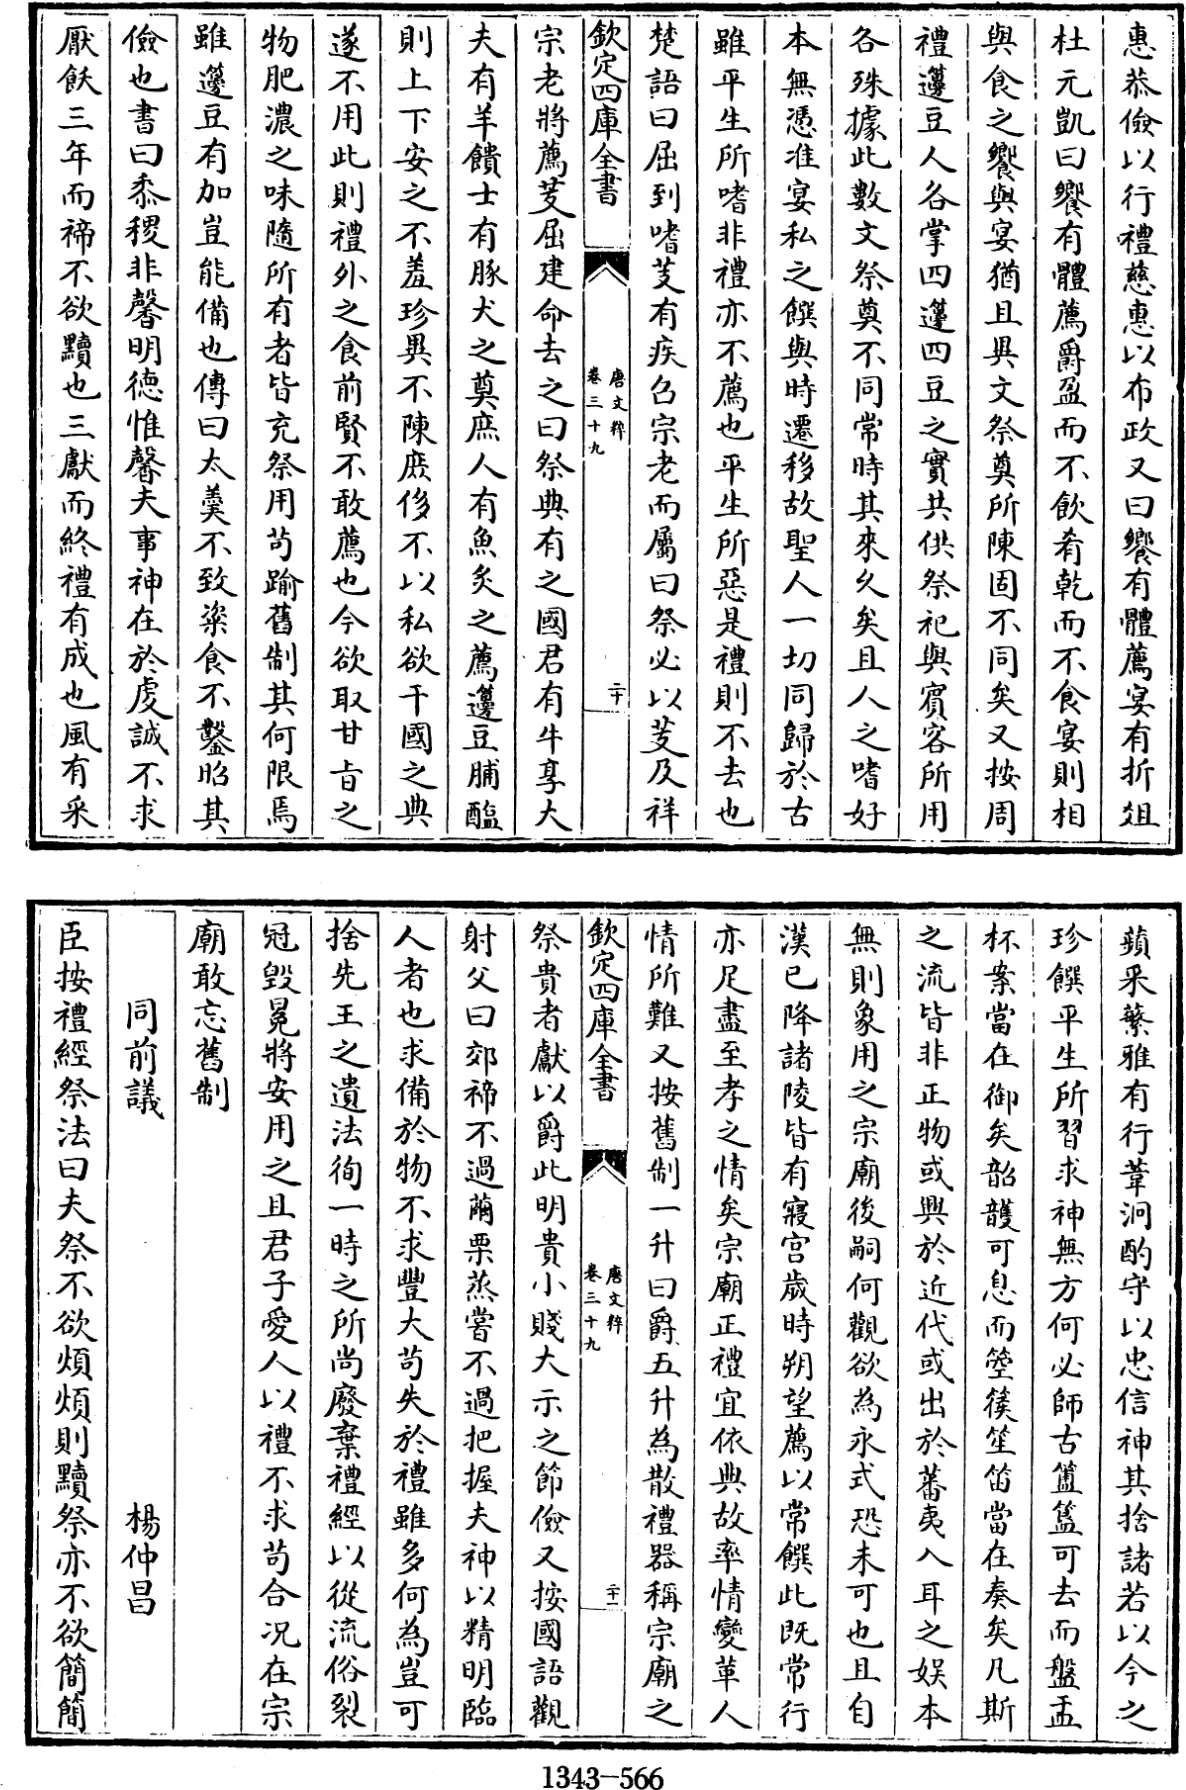 惠恭儉以行禮慈惠以布政又曰饗有體薦宴有折俎
杜元凱曰饗有體薦爵盈而不飲肴乾而不食宴則相
與食之饗與宴猶且異文祭奠所陳固不同矣又按周
禮籩豆人各掌四籩四豆之實共供祭祀與賓客所用
各殊據此數文祭奠不同常時其來久矣且人之嗜好
本無憑准宴私之饌與時遷移故聖人一切同歸於古
雖平生所嗜非禮亦不薦也平生所惡是禮則不去也
楚語曰屈到嗜芰有疾召宗老而屬曰祭必以芰及祥
欽定四庫全書
唐文粹
卷三十九
二十
宗老將薦芰屈建命去之曰祭典有之國君有牛享大
夫有羊饋士有豚犬之奠庶人有魚炙之薦籩豆脯醢
則上下安之不羞珍異不陳庶侈不以私欲干國之典
遂不用此則禮外之食前賢不敢薦也今欲取甘旨之
物肥濃之味隨所有者皆充祭用苟踰舊制其何限焉
雖籩豆有加豈能備也傳曰大羹不致粢食不鑿昭其
儉也書曰黍稷非馨明德惟馨夫事神在於虔誠不求
厭飫三年而禘不欲黷也三獻而終禮有成也風有采
蘋采蘩雅有行葦泂酌守以忠信神其捨諸若以今之
珍饌平生所習求神無方何必師古簠簋可去而盤盂
杯案當在御矣韶頀可息而箜篌笙笛當在奏矣凡斯
之流皆非正物或興於近代或出於蕃夷入耳之娛本
無則象用之宗廟後嗣何觀欲為永式恐未可也且自
漢已降諸陵皆有寢宮歲時朔望薦以常饌此既常行
亦足盡至孝之情矣宗廟正禮宜依典故率情變革人
情所難又按舊制一升曰爵五升為散禮器稱宗廟之
欽定四庫全書
唐文粹
卷三十九
二十一
祭貴者獻以爵此明貴小賤大示之節儉又按國語觀
射父曰郊禘不過繭栗蒸嘗不過把握夫神以精明臨
人者也求備於物不求豐大苟失於禮雖多何為豈可
捨先王之遺法徇一時之所尚廢棄禮經以從流俗裂
冠毀冕將安用之且君子愛人以禮不求苟合況在宗
廟敢忘舊制
同前議 楊仲昌
臣按禮經祭法曰夫祭不欲煩煩則黷祭亦不欲簡簡
1343-566